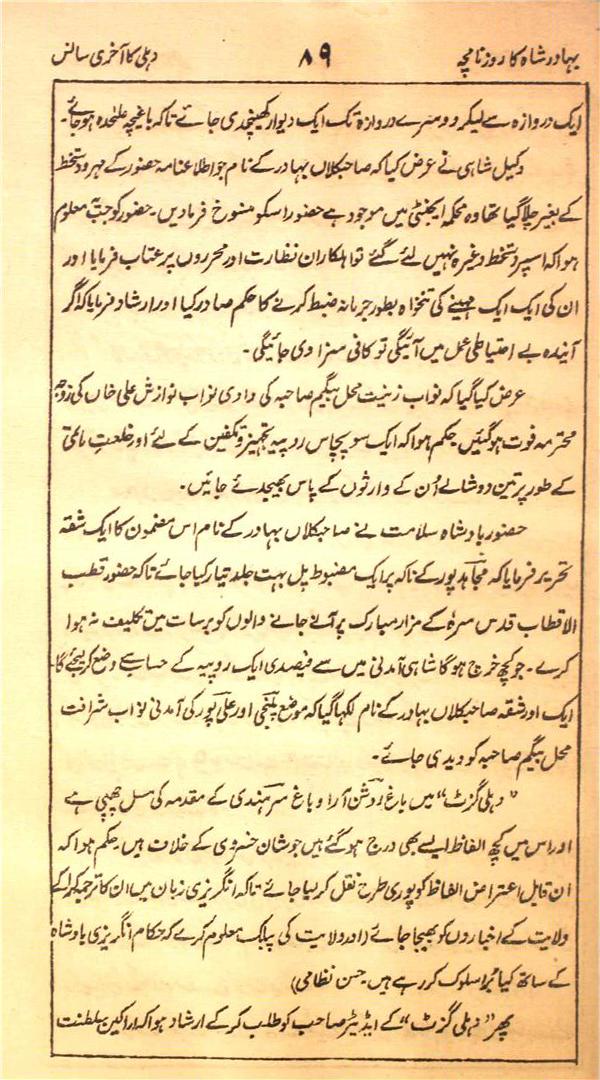 بہادر شاہ کا روزنامچہ ۸۹ دہلی کا آخری سانس
ایک دروازہ سے لیکر دوسرے دروازہ تک ایک دیوار کھینچدی جائے تاکہ باغیچہ علیٰحدہ ہو جائے۔
وکیل شاہی نے عرض کیا کہ صاحبکلاں بہادر کے نام جو اطلاعنامہ حضور کے مہر و دستخط
کے بغیر چلا گیا تھا وہ محکمہ ایجنٹی میں موجود ہے حضور اسکو منسوخ فرمادیں۔ حضور کو جب یہ معلوم
ہوا کہ اسپر دستخط وغیرہ نہیں لئے گئے تو اہلکاران نظارت اور محرروں پر عتاب فرمایا اور
ان کی ایک ایک مہینے کی تنخواہ بطور جرمانہ ضبط کرنے کا حکم صادر کیا اور ارشاد فرمایا کہ اگر
آیندہ بے احتیاطی عمل میں آئیگی تو کافی سزا دی جائیگی۔
عرض کیا گیا کہ نواب زینت محل بیگم صاحبہ کی دادی نواب نوازش علی خاں کی زوجہ
محترمہ فوت ہو گئیں۔ حکم ہوا کہ ایک سو پچاس روپیہ تجہیز و تکفین کے لئے اور خلعتِ ماتمی
کے طور پر تین دوشالے اُن کے وارثوں کے پاس بھیجدئے جائیں۔
حضور بادشاہ سلامت نے صاحبکلاں بہادر کے نام اس مضمون کا ایک شقہ
تحریر فرمایا کہ مجاہد پور کے ناکہ پر ایک مضبوط پل بہت جلد تیار کیا جائے تاکہ حضور قطب
الاقطاب قدس سرہٗ کے مزار مبارک پر آنے جانے والوں کو برسات میں تکلیف نہ ہوا
کرے۔ جو کچھ خرچ ہو گا شاہی آمدنی میں سے فیصدی ایک روپیہ کے حساب سے وضع کر لیجئے گا۔
ایک اور شقہ صاحبکلاں بہادر کے نام لکھا گیا کہ موضع پلنجی اور علی پور کی آمدنی نواب شرافت
محل بیگم صاحبہ کو دیدی جائے۔
"دہلی گزٹ" میں باغ روشن آرا و باغ سرہندی کے مقدمہ کی مسل چھپی ہے
اور اس میں کچھ الفاظ ایسے بھی درج ہو گئے ہیں جو شان خسروی کے خلاف ہیں۔ حکم ہوا کہ
ان قابل اعتراض الفاظ کو پوری طرح نقل کر لیا جائے تاکہ انگریزی زبان میں ان کا ترجمہ کر کے
ولایت کے اخباروں کو بھیجا جائے (اور ولایت کی پبلک معلوم کرے کہ حکام انگریزی بادشاہ
کے ساتھ کیا بُرا سلوک کر رہے ہیں۔ حسن نظامی)
پھر "دہلی گزٹ" کے ایڈیٹر صاحب کو طلب کر کے ارشاد ہوا کہ اراکین سلطنت